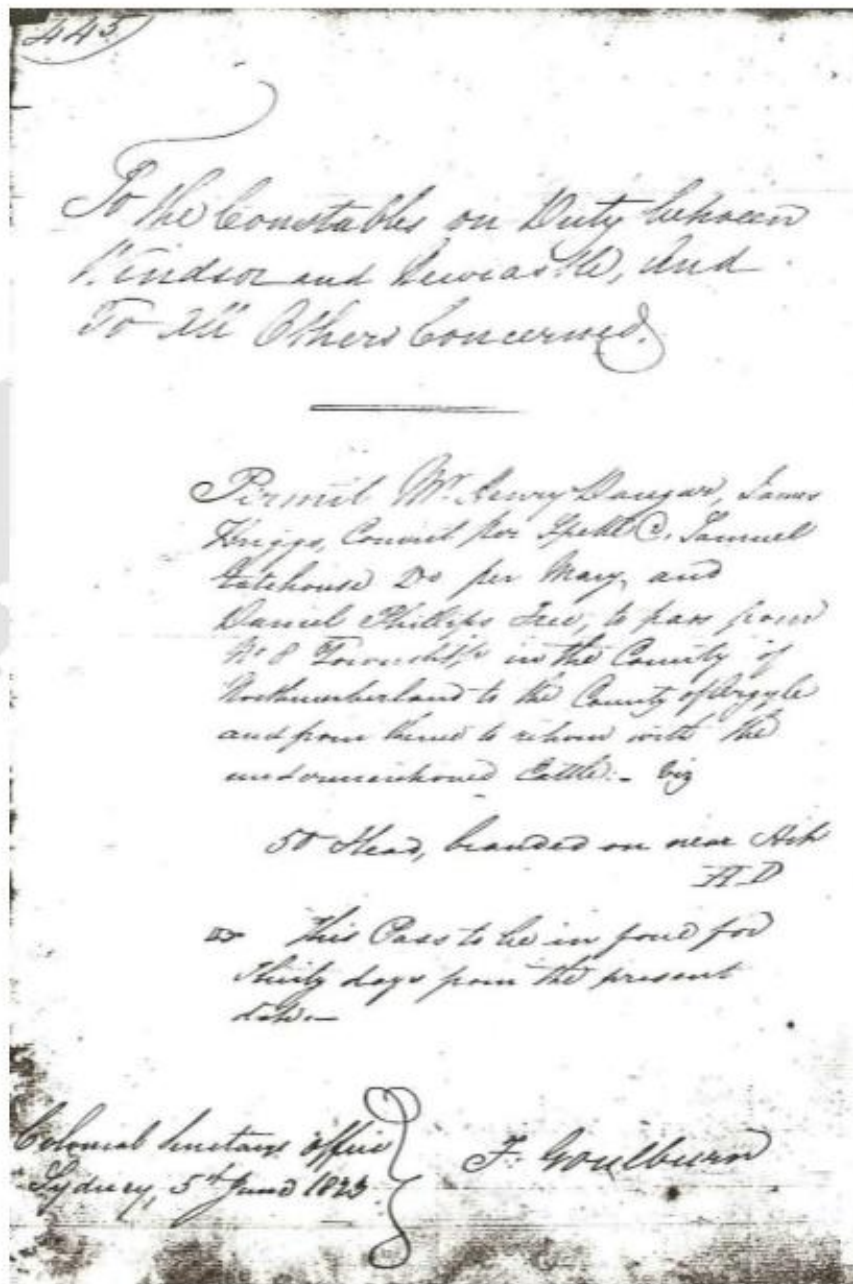 445
To the Constables on Duty between
Windsor and Newcastle, And
To All Others Concerned.
Permit Mr. Henry Dangar, James
Briggs, Convict per Speke C. Samuel
Gatehouse Do per Mary, and
Daniel Phillips Free, to pass from
No 8 Township in the County of
Northumberland to the County of Argyle
and from thence to return with the
undermentioned Cattle:- Viz
50 Head, branded on near
AD
This Pass to be in force for
Thirty days from the present
date.—
Colonial Secretarys Office
Sydney, 5th June 1823
F. Goulburn